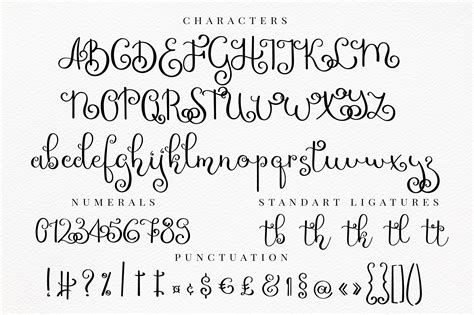 CHARACTERS
ABCDEFGHIJKLM
NOPQRSTUVWXYZ
abcdefghijklmnopqrstuvwxyz
NUMERALS STANDART LIGATURES
0123456789 tb th tk tl tt
PUNCTUATION
!#?%|†‡¤×$€&@«»{}[]()